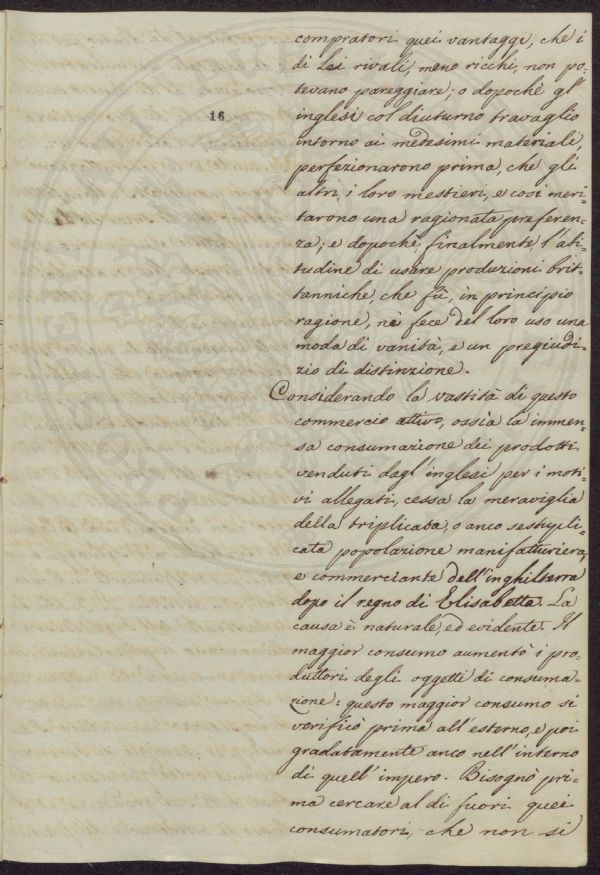 16
compratori quei vantaggi, che i
di Lei rivali, meno ricchi, non po-
tevano pareggiare; o dopochè gl'
inglesi col diuturno travaglio
intorno ai medesimi materiali,
perfezionarono prima, che gli
altri, i loro mestieri, e così meri-
tarono una ragionata preferen-
za; e dopochè, finalmente, l'abi-
tudine di usare produzioni brit-
tanniche, che fù, in principio
ragione, nè fece del loro uso una
moda di vanità, e un pregiudi-
zio di distinzione.
Considerando la vastità di questo
commercio attivo, ossia la immen-
sa consumazione dei prodotti
venduti dagl'inglesi per i moti-
vi allegati, cessa la meraviglia
della triplicata, o anco sestupli-
cata popolazione manifatturiera,
e commerciante dell'inghilterra
dopo il regno di Elisabetta. La
causa è naturale, ed evidente. Il
maggior consumo aumentò i pro-
duttori degli oggetti di consuma-
zione: questo maggior consumo si
verificò prima all'esterno, e poi
gradatamente anco nell'interno
di quell'impero. Bisognò pri-
ma cercare al di fuori quei
consumatori, che non si